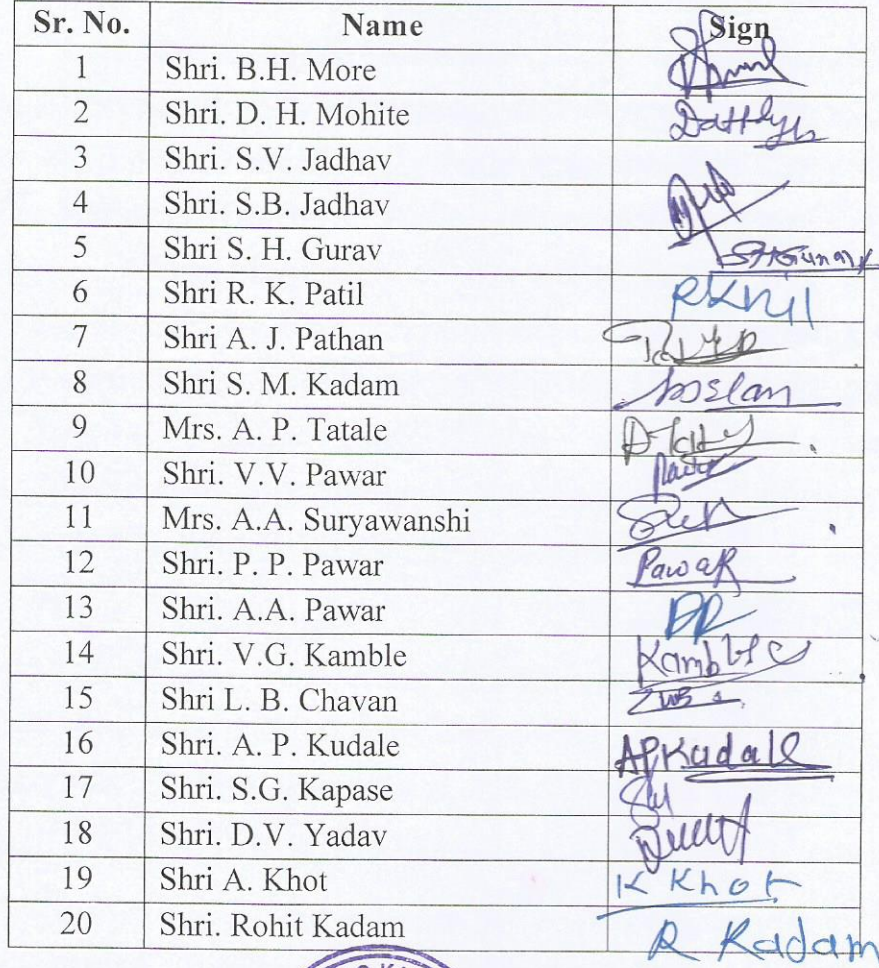 Sr. No. Name Sign
1 Shri. B.H. More
2 Shri. D. H. Mohite
3 Shri. S.V. Jadhav
4 Shri. S.B. Jadhav
5 Shri S. H. Gurav SHGurav
6 Shri R. K. Patil
7 Shri A. J. Pathan
8 Shri S. M. Kadam
9 Mrs. A. P. Tatale
10 Shri. V.V. Pawar
11 Mrs. A.A. Suryawanshi
12 Shri. P. P. Pawar Pawar
13 Shri. A.A. Pawar
14 Shri. V.G. Kamble Kamble
15 Shri L. B. Chavan
16 Shri. A. P. Kudale APKudale
17 Shri. S.G. Kapase
18 Shri. D.V. Yadav
19 Shri A. Khot K Khot
20 Shri. Rohit Kadam R Kadam